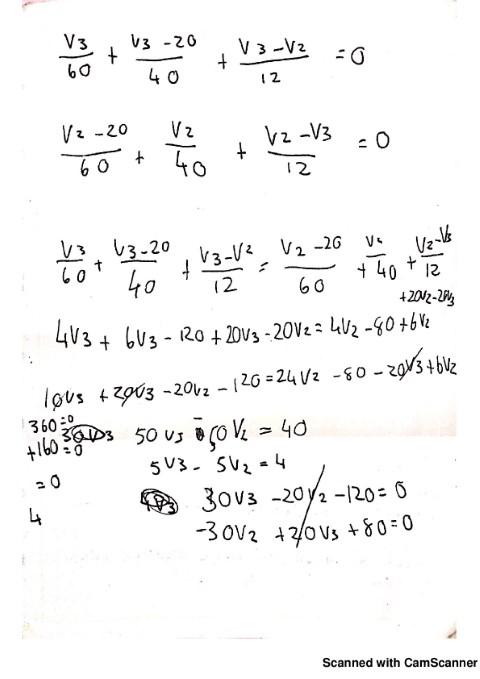 V3/60 + V3-20/40 + V3-V2/12 = 0
V2-20/60 + V2/40 + V2-V3/12 = 0
V3/60 + V3-20/40 + V3-V2/12 = V2-20/60 + V2/40 + V2-V3/12
+20V2-20V3
4V3 + 6V3 - 120 + 20V3 - 20V2 = 4V2 - 80 + 6V2
10V3 + 20V3 - 20V2 - 120 = 24V2 - 80 - 20V3 + 6V2
360=0
30V3 50V3 - 50V2 = 40
+160=0
5V3 - 5V2 = 4
=0
30V3 - 20V2 - 120 = 0
4
-30V2 + 20V3 + 80 = 0
Scanned with CamScanner